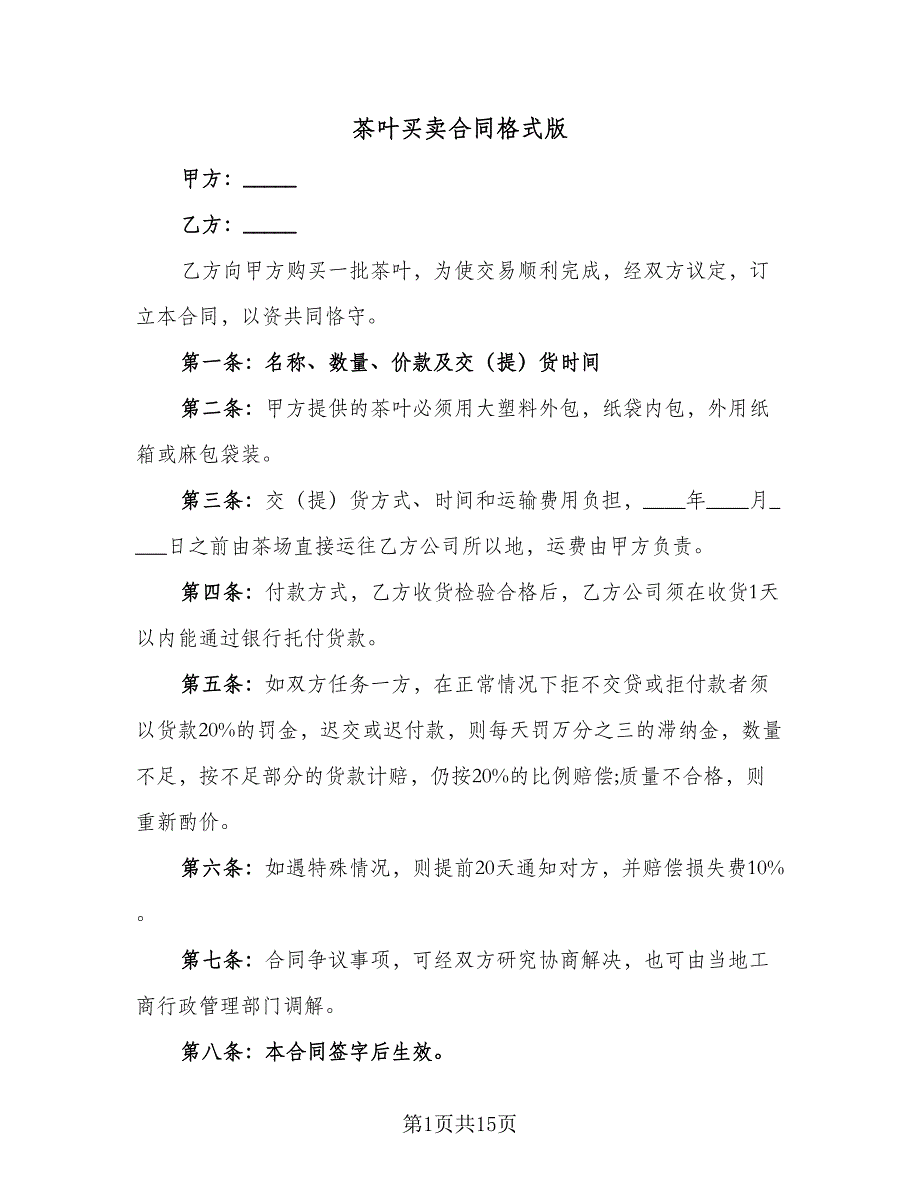 茶叶买卖合同格式版
甲方：_____
乙方：_____
乙方向甲方购买一批茶叶，为使交易顺利完成，经双方议定，订
立本合同，以资共同恪守。
第一条：名称、数量、价款及交（提）货时间
第二条：甲方提供的茶叶必须用大塑料外包，纸袋内包，外用纸
箱或麻包袋装。
第三条：交（提）货方式、时间和运输费用负担，____年____月_
___日之前由茶场直接运往乙方公司所以地，运费由甲方负责。
第四条：付款方式，乙方收货检验合格后，乙方公司须在收货1天
以内能通过银行托付货款。
第五条：如双方任务一方，在正常情况下拒不交贷或拒付款者须
以货款20%的罚金，迟交或迟付款，则每天罚万分之三的滞纳金，数量
不足，按不足部分的货款计赔，仍按20%的比例赔偿;质量不合格，则
重新酌价。
第六条：如遇特殊情况，则提前20天通知对方，并赔偿损失费10%
。
第七条：合同争议事项，可经双方研究协商解决，也可由当地工
商行政管理部门调解。
第八条：本合同签字后生效。
第1页共15页